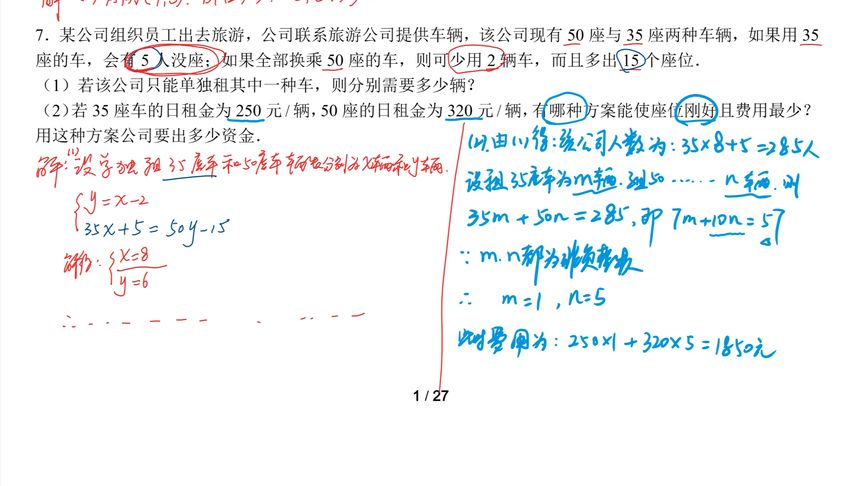 7．某公司组织员工出去旅游，公司联系旅游公司提供车辆，该公司现有 50 座与 35 座两种车辆，如果用 35
座的车，会有 5 人没座；如果全部换乘 50 座的车，则可少用 2 辆车，而且多出 15 个座位．
（1）若该公司只能单独租其中一种车，则分别需要多少辆？
（2）若 35 座车的日租金为 250 元 / 辆，50 座的日租金为 320 元 / 辆，有哪种方案能使座位刚好且费用最少？
用这种方案公司要出多少资金．
解：(1)设单独租35座车和50座车辆数分别为x辆和y辆．
{y=x-2
35x+5=50y-15
解得：{x=8
y=6
(2).由(1)得：该公司人数为：35×8+5=285人
设租35座车为m辆．租50……n辆．则
35m+50n=285，即 7m+10n=57
∵ m.n都为非负整数
∴ m=1，n=5
此时费用为：250×1+320×5=1850元
1 / 27